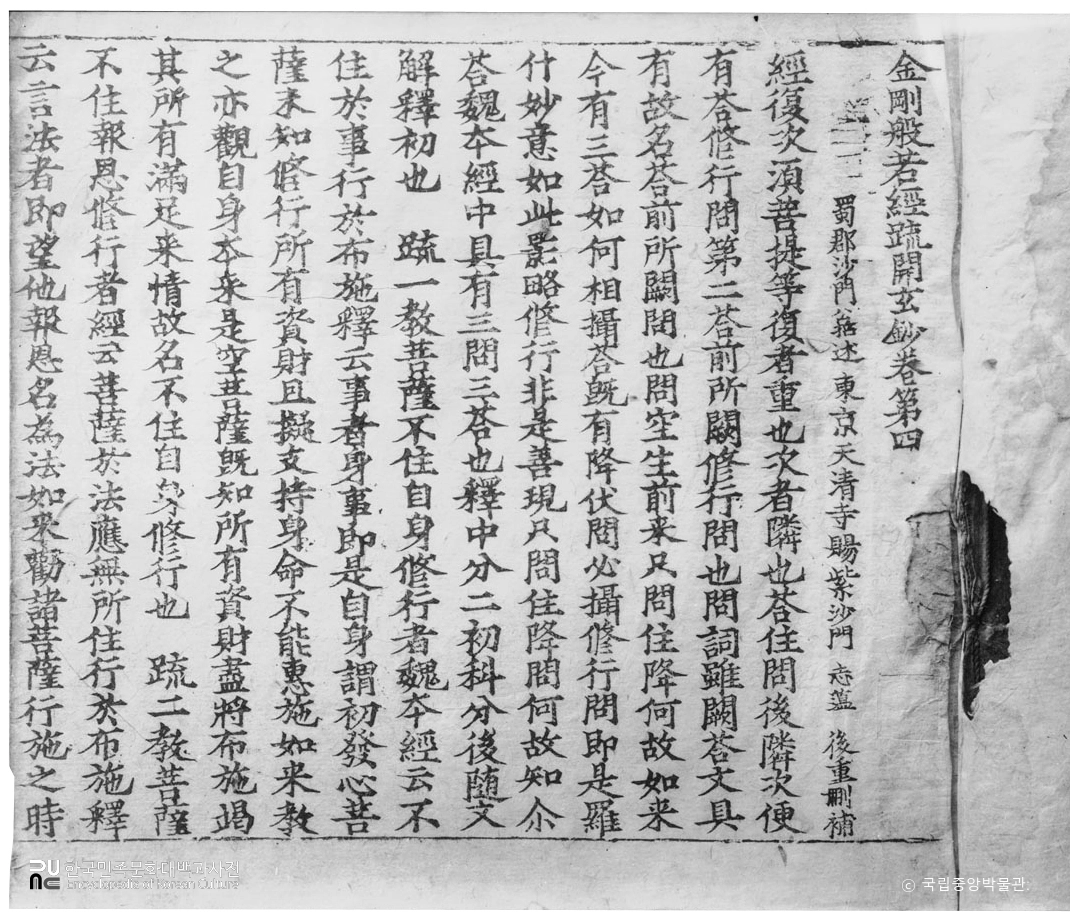 金剛般若經疏開玄鈔卷第四
蜀郡沙門 述 東京天清寺賜紫沙門 志蕴 後重刪補
經復次須菩提等復者重也次者隣也荅住問後隣次便
有荅俢行問第二荅前所闕俢行問也問詞雖闕荅文具
有故名荅前所闕問也問空生前来只問住降何故如来
今有三荅如何相攝荅旣有降伏問必攝俢行問即是羅
什妙意如此影略俢行非是善現只問住降問何故知尒
荅魏本經中具有三問三荅也釋中分二初科分後随文
解釋初也 疏一教菩薩不住自身俢行者魏本經云不
住於事行於布施釋云事者身事即是自身謂初發心菩
薩未知俢行所有資財且擬支持身命不能惠施如来教
之亦觀自身本来是空菩薩旣知所有資財盡將布施竭
其所有滿足来情故名不住自身俢行也 疏二教菩薩
不住報恩俢行者經云菩薩於法應無所住行於布施釋
云言法者即望他報恩名為法如来勸諸菩薩行施之時
한국민족문화대백과사전
Encyclopedia of Korean Culture
© 국립중앙박물관